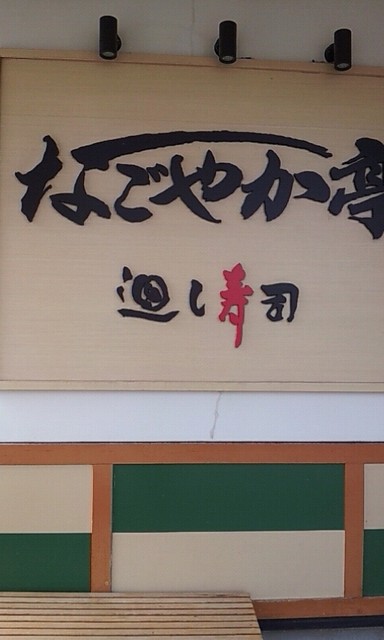 なごやか亭
廻し寿司